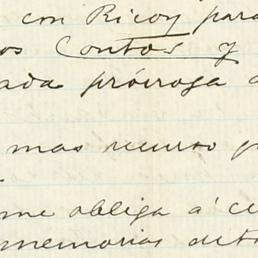 con Ricoy para
os Contos y
ada prórroga a
mas recurso
me obliga á ce
memorias det